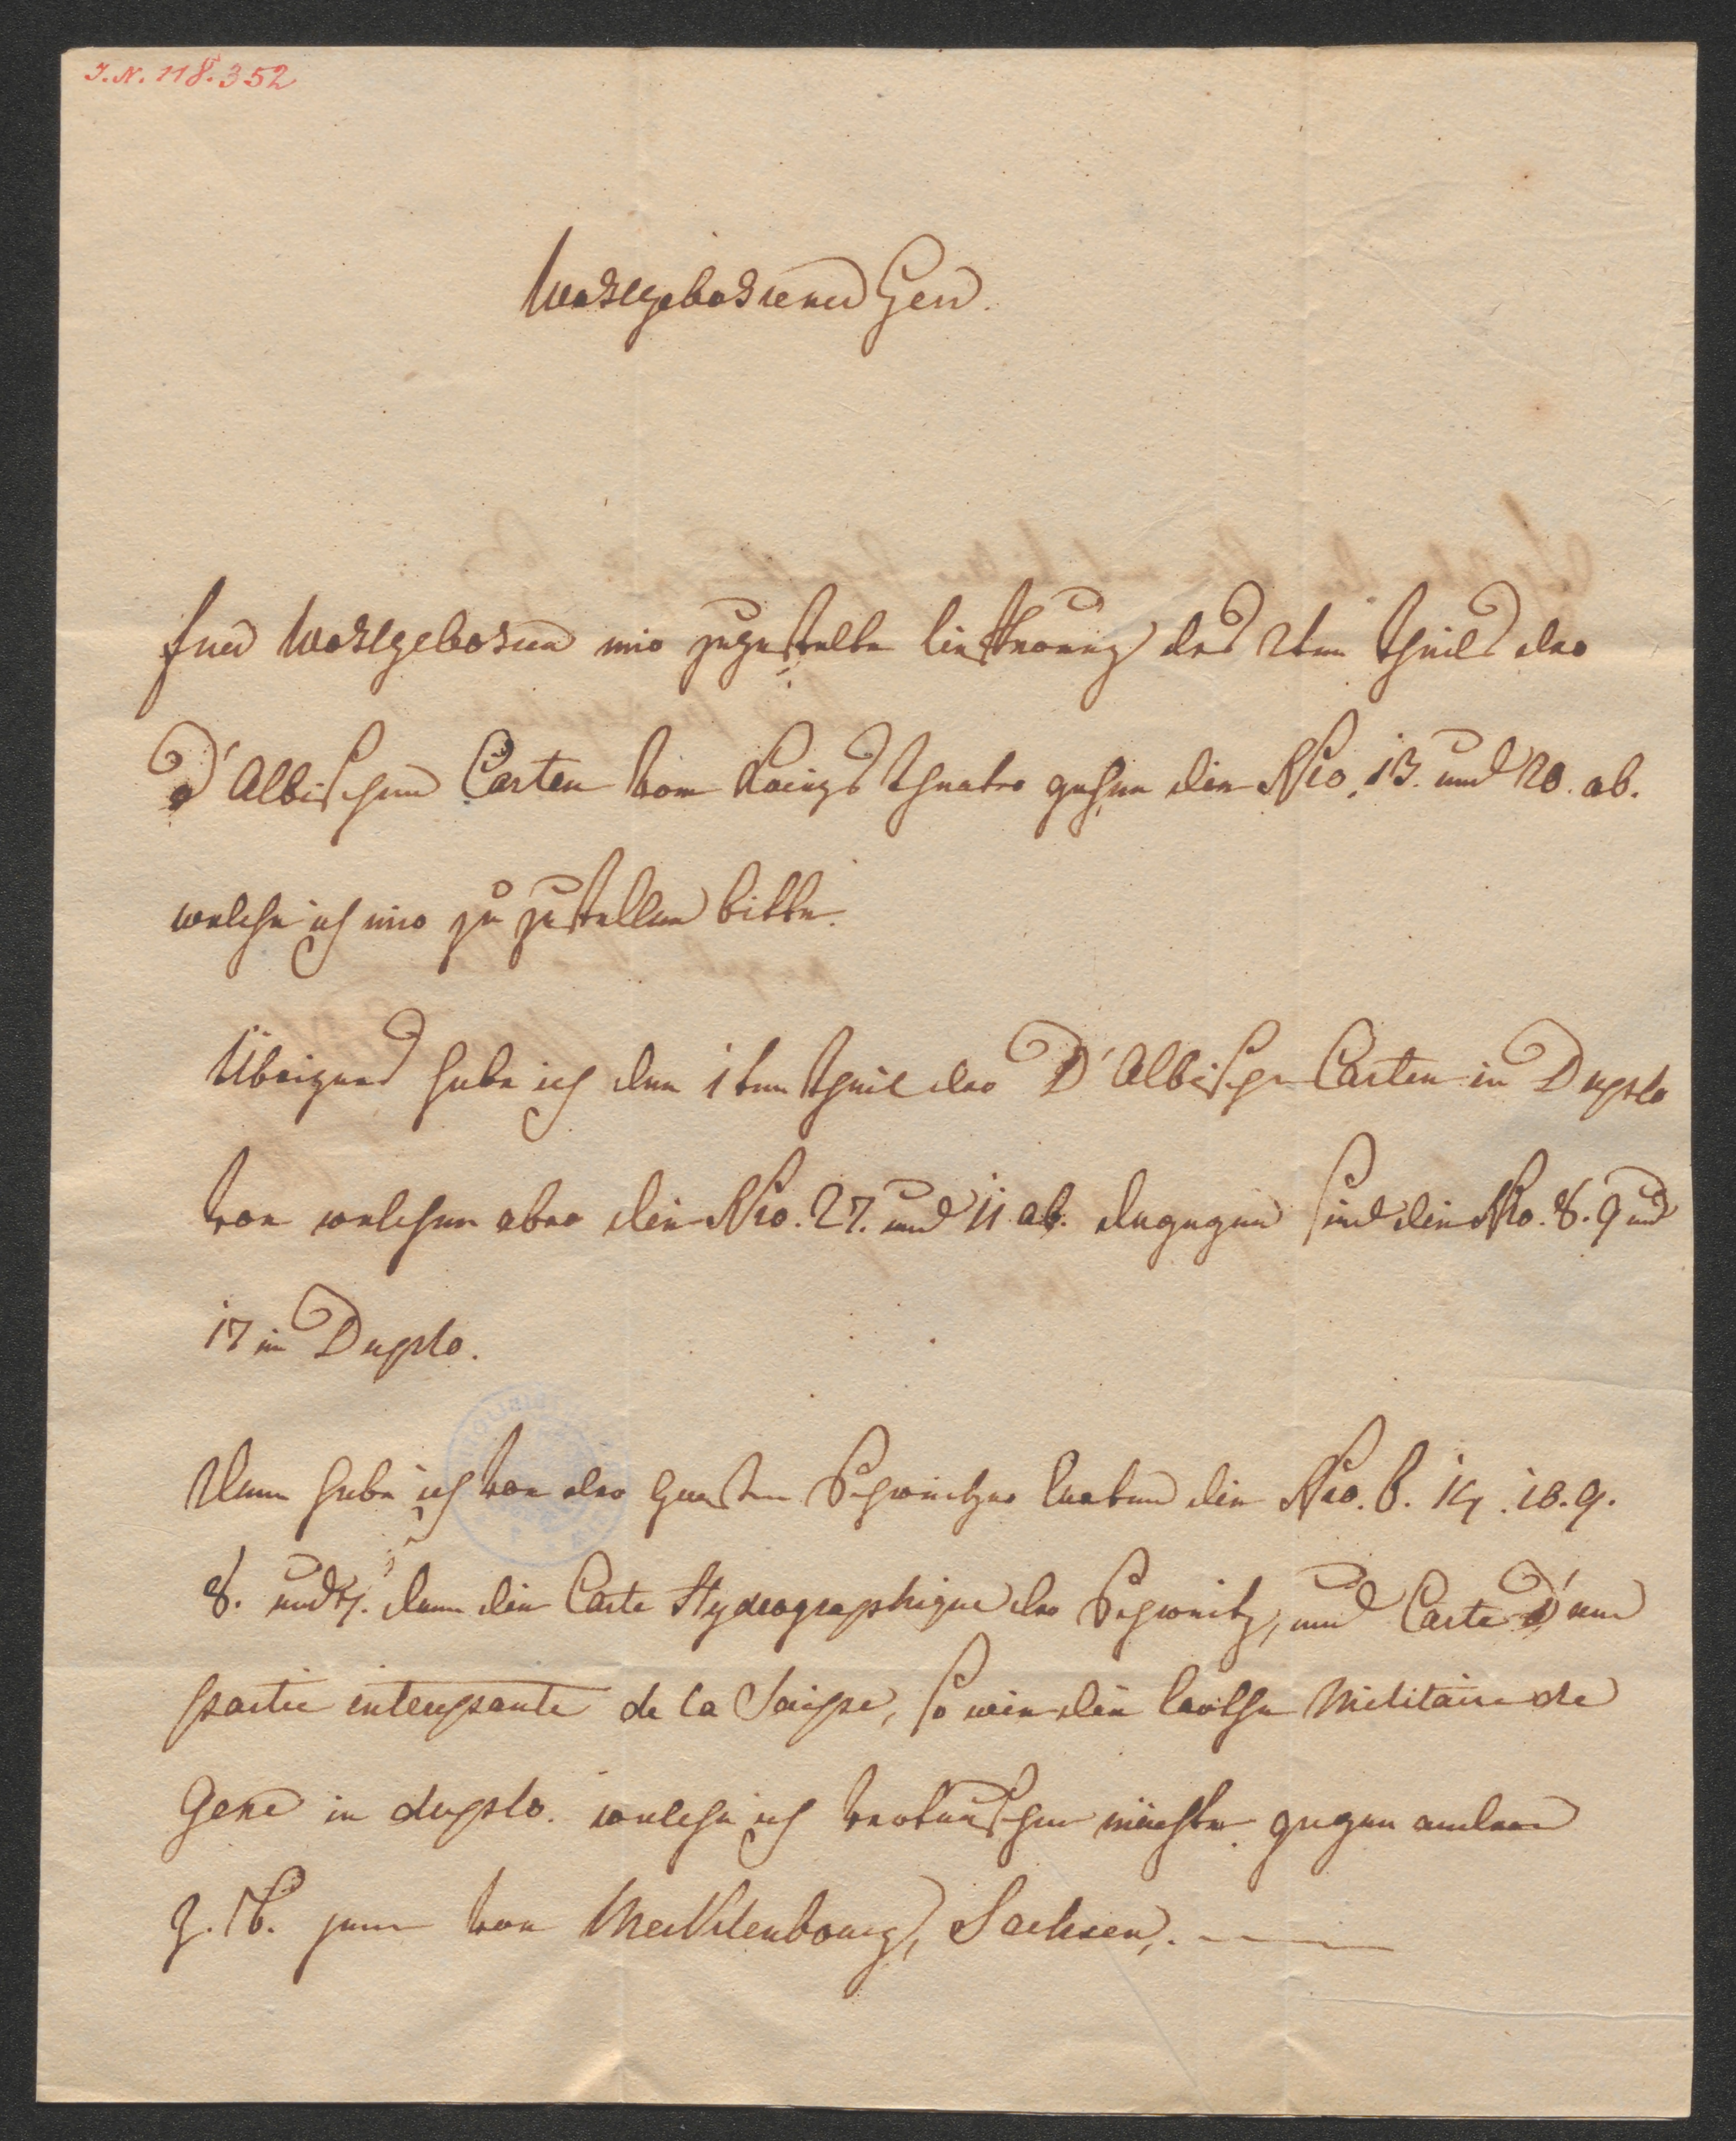 I.N. 118.352
Wohlgebohrener Herr.
Euer Wohlgebohren mir zugestelte Liefferung des 2ten Theils der
D'Albischen Carten vom Kriegs Theater gehen die Nro. 13. und 20. ab.
welche ich mir zu zustellen bitte.
Übrigens habe ich den 1ten Theil der D'Albischen Carten in Duplo
von welchen aber die Nro. 27. und 11 ab. dagegen sind die Nro. 8. 9 und
17 in Duplo.
Dann habe ich von der Schweitzer Karten die Nro. 10. 9.
8. und dann die Carte Hydrographique der Schweitz, und Carte d'une
partie interessante de la Suisse, so wie die Carthe Militaire de
Gene in duplo. welche ich vertauschen möchte gegen andere
z. B. jene von Mecklenbourg, Sachsen,.